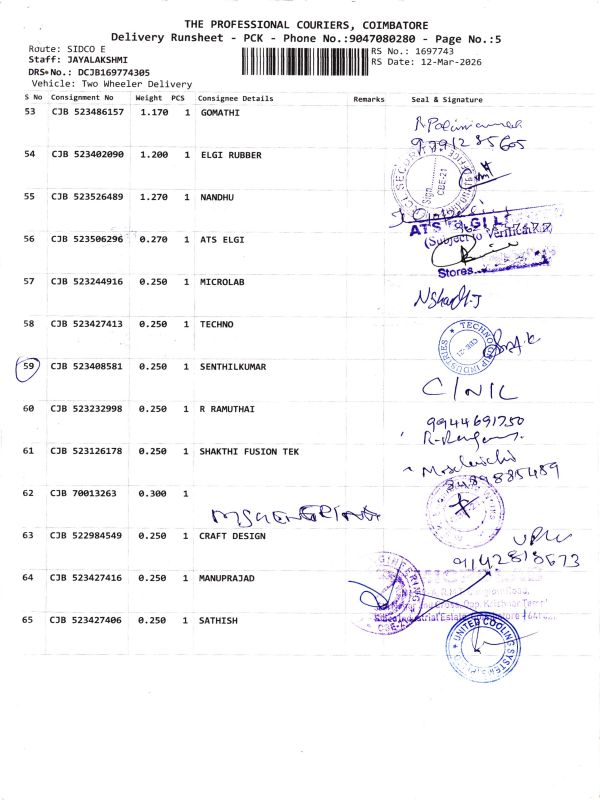 THE PROFESSIONAL COURIERS, COIMBATORE
Delivery Runsheet - PCK - Phone No.:9047080280 - Page No.:5
Route: SIDCO E RS No.: 1697743
Staff: JAYALAKSHMI RS Date: 12-Mar-2026
DRS No.: DCJB169774305
Vehicle: Two Wheeler Delivery
S No Consignment No Weight PCS Consignee Details Remarks Seal & Signature
53 CJB 523486157 1.170 1 GOMATHI
54 CJB 523402090 1.200 1 ELGI RUBBER
CBE-21
Sign
55 CJB 523526489 1.270 1 NANDHU
56 CJB 523506296 0.270 1 ATS ELGI
ATS ELGI L
(Subject to Verification)
Stores
57 CJB 523244916 0.250 1 MICROLAB
58 CJB 523427413 0.250 1 TECHNO
INDUSTRIES
59 CJB 523408581 0.250 1 SENTHILKUMAR
C/N/L
60 CJB 523232998 0.250 1 R RAMUTHAI
9944691750
61 CJB 523126178 0.250 1 SHAKTHI FUSION TEK
8489885489
62 CJB 70013263 0.300 1
63 CJB 522984549 0.250 1 CRAFT DESIGN
9142818673
64 CJB 523427416 0.250 1 MANUPRAJAD
65 CJB 523427406 0.250 1 SATHISH
UNITED COOLING SYSTEMS